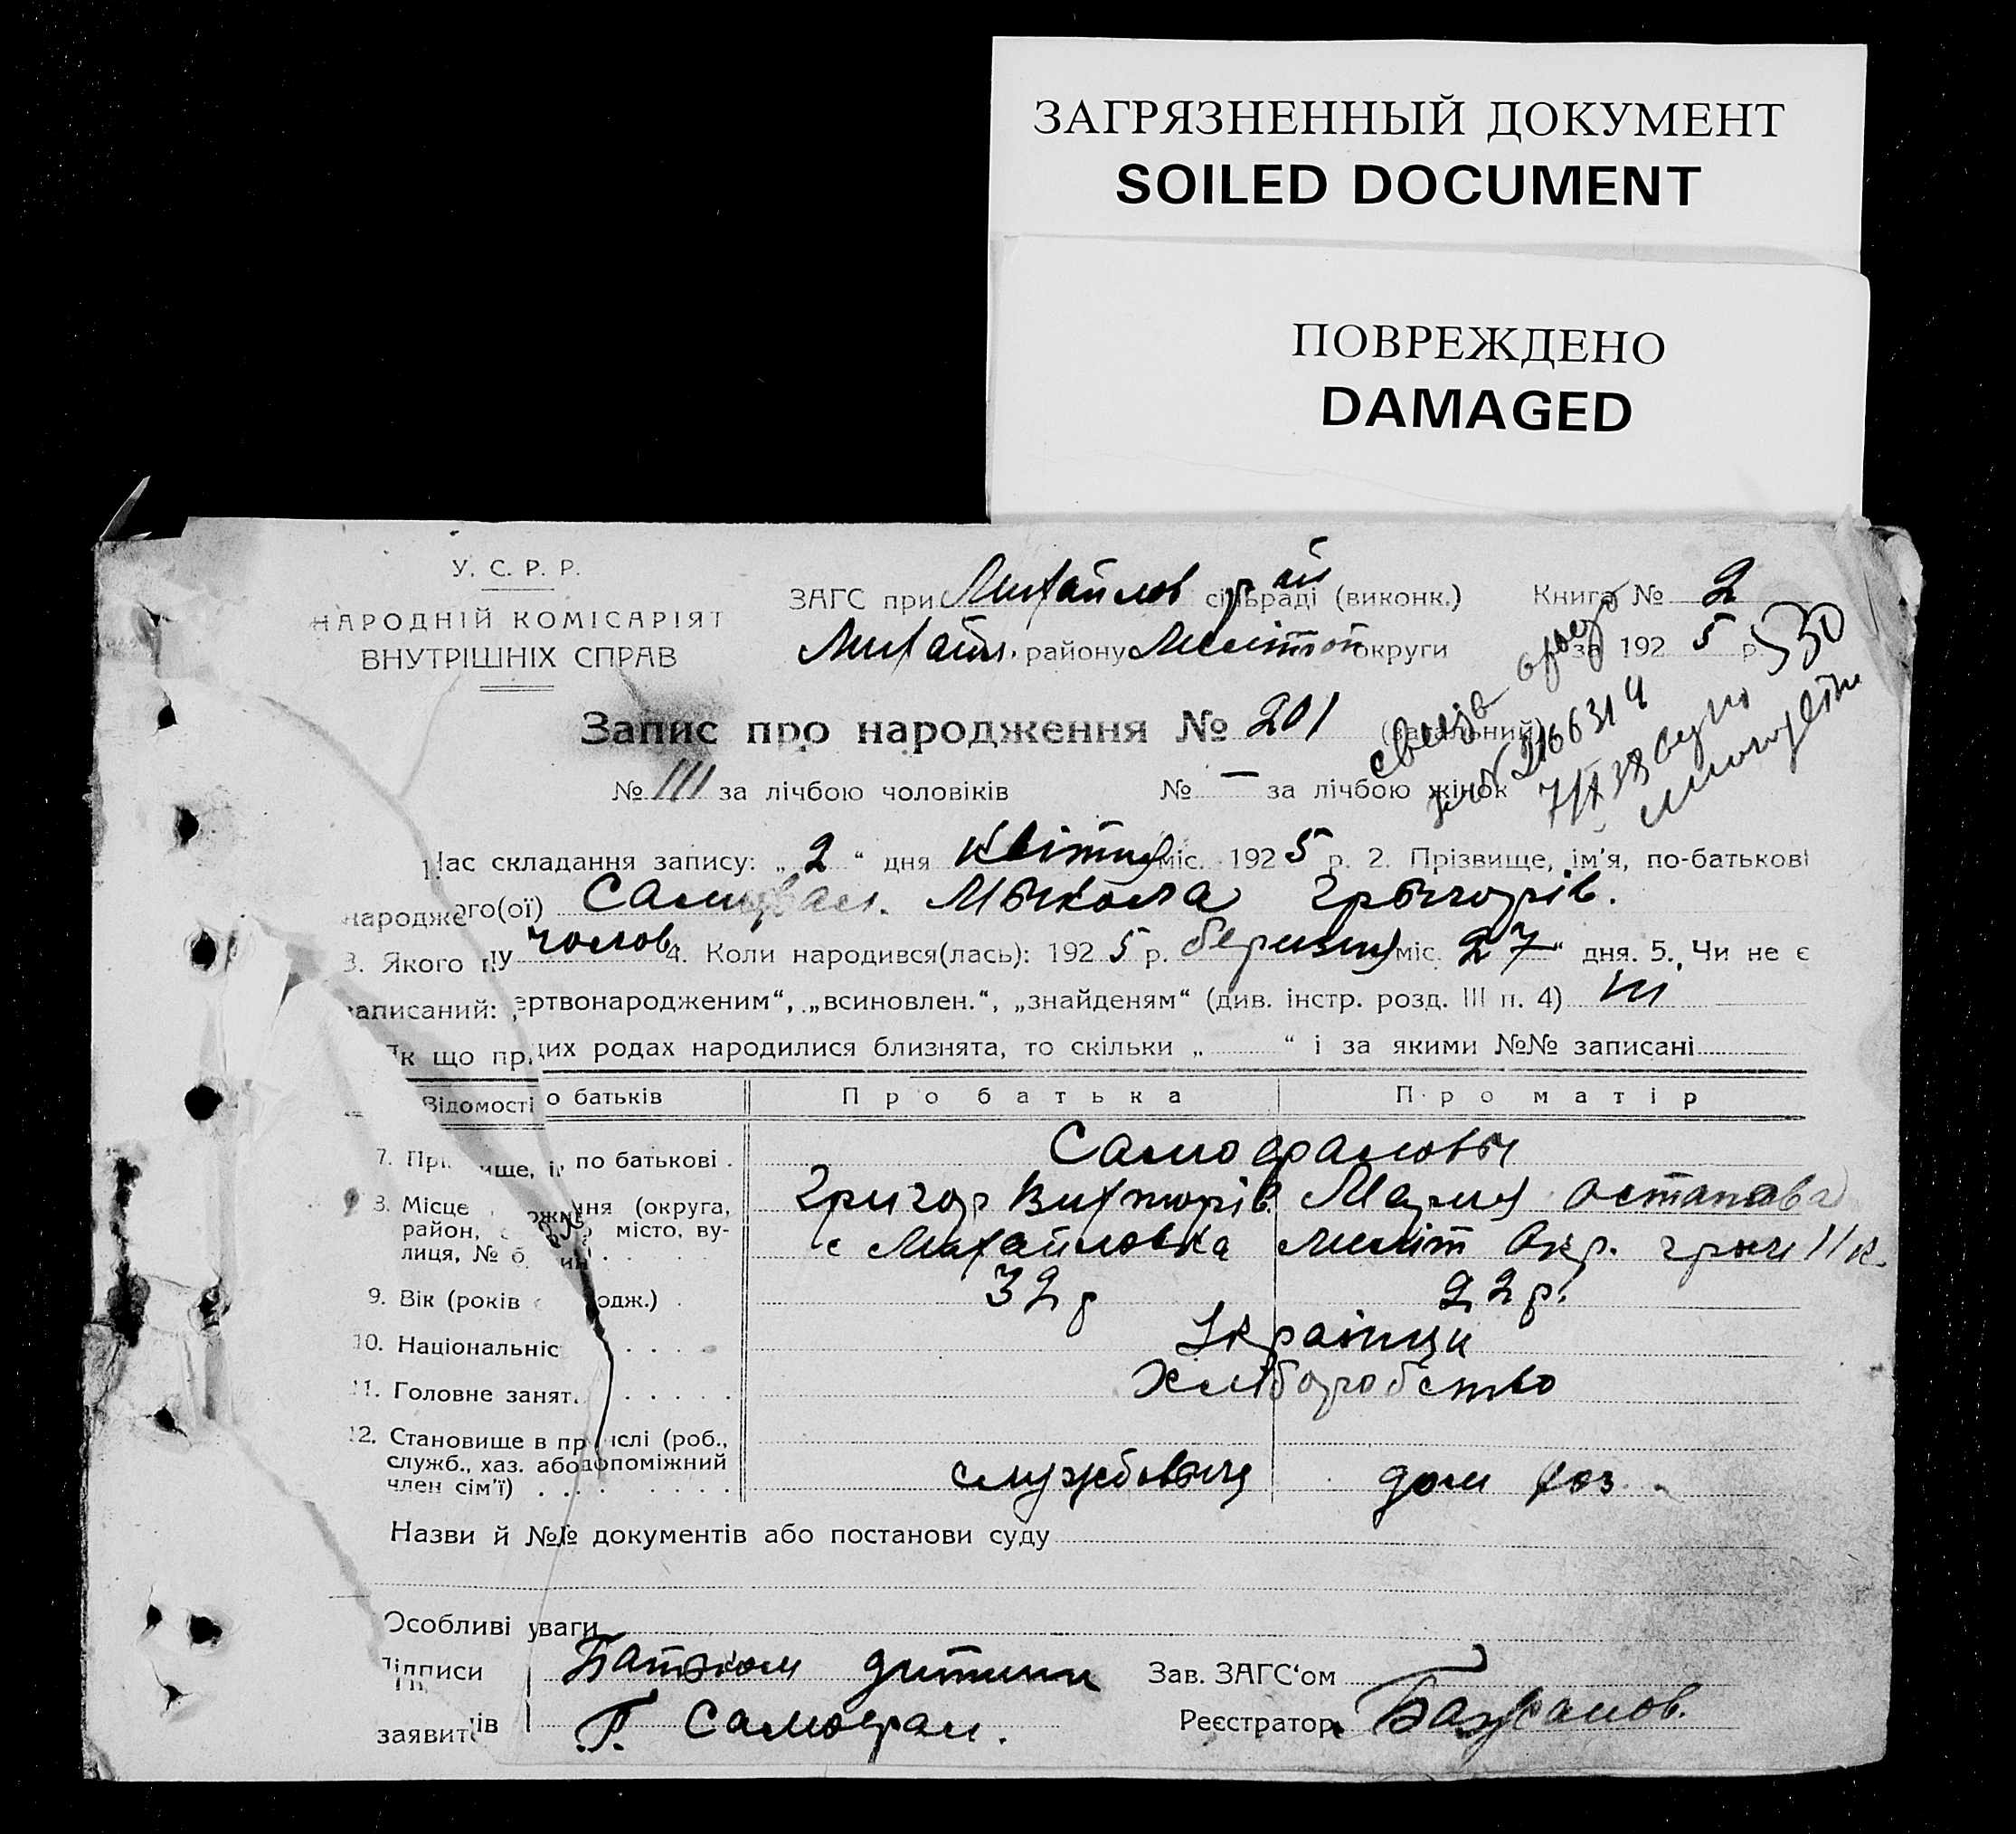 ЗАГРЯЗНЕННЫЙ ДОКУМЕНТ
SOILED DOCUMENT
ПОВРЕЖДЕНО
DAMAGED
У. С. Р. Р.
НАРОДНІЙ КОМІСАРІЯТ
ВНУТРІШНІХ СПРАВ
ЗАГС при Михайлов рай сільраді (виконк.) Книга № 2
Михайл. району Мелітоп округи за 1925 р.
530
Запис про народження № 201 (загальний)
№ 111 за лічбою чоловіків № — за лічбою жінок
Час складання запису: „2“ дня Квітня міс. 1925 р. 2. Прізвище, ім'я, по-батькові
народже ого(ої) Самофал. Мыкола Грыгорів.
3. Якого п лу чолов 4. Коли народився(лась): 1925 р. березня міс. 27“ дня. 5. Чи не є
записаний: ертвонародженим“, „всиновлен.“, „знайденям“ (див. інстр. розд. III п. 4) ні
Як що пр цих родах народилися близнята, то скільки „ “ і за якими №№ записані
Відомості о батьків Про батька Про матір
7. Пр ище, і по батькові . Самофаловы
Григор Вихторів. Мария Остапова
8. Місце ожи ння (округа,
район, місто, ву-
лиця, № б ин) . . . с Михайловка меліт Окр.
9. Вік (років одж.) . 32 р 22 р.
10. Національніс . . . . Українци
11. Головне занят. . . . . Хліборобство
12. Становище в пр ислі (роб.,
служб., хаз. або допоміжний
член сім'ї) . . . . . . . службовыця дом хоз.
Назви й №№ документів або постанови суду
Особливі уваги
Підписи Батьком дитини Зав. ЗАГС'ом
заявит ів Г. Самофал. Реєстратор Бажанов.